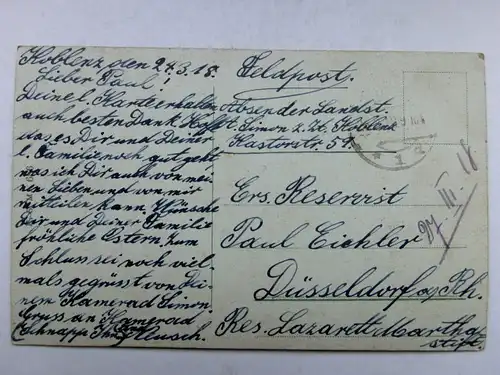 Koblenz den 24.3.18.
Lieber Paul!
Deine l. Karte erhalten
auch besten Dank. Hoffe
das es Dir und Deiner
l. Familie noch gut geht
was ich Dir auch von mei-
nen Lieben und von mir
mitteilen kann. Wünsche
Dir und Deiner Familie
fröhliche Ostern. Zum
Schluss sei noch viel-
mals gegrüsst von Dei-
nem Kamerad Simon.
Gruss an Kamerad
Schnapp und
Feldpost.
Absender Landst.
Simon z. Zt. Koblenz
Kastorstr. 51.
Ers. Reservist
Paul Eichler
Düsseldorf a/Rh.
Res. Lazarett Martha
stift.
27/III 18